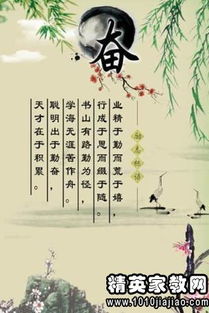 奋
励志标语
业精于勤而荒于嬉，
行成于思而毁于随。
书山有路勤为径，
学海无涯苦作舟。
聪明出于勤奋，
天才在于积累。
精英家教网
www.1010jiajiao.com